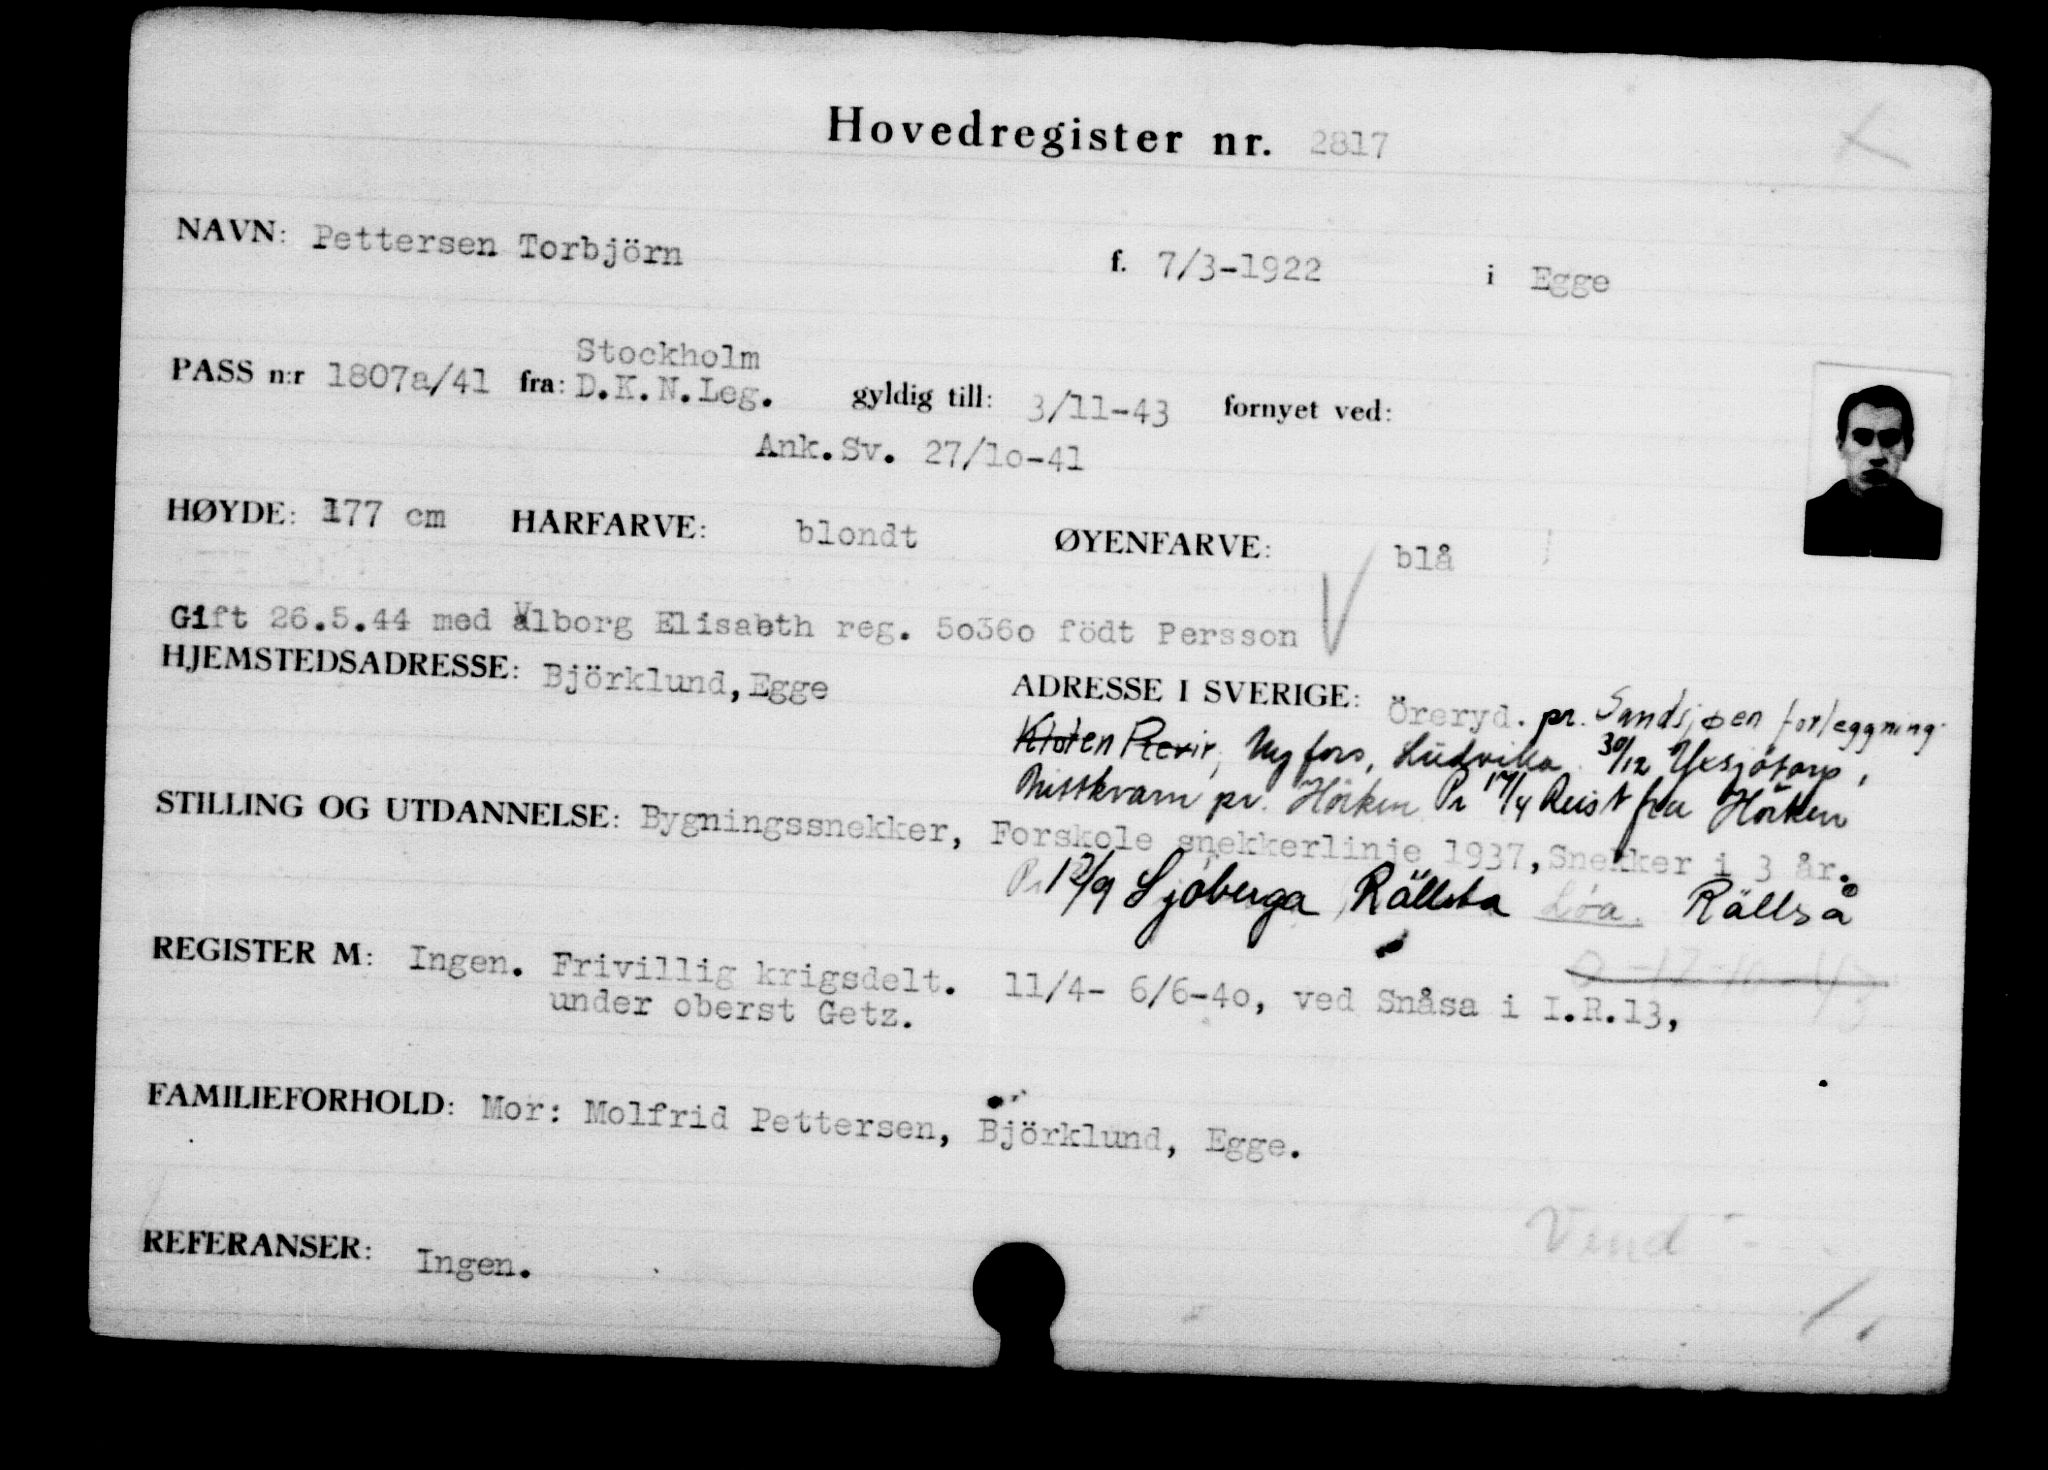 Hovedregister nr. 2817
NAVN: Pettersen Torbjörn f. 7/3-1922 i Egge
Stockholm
PASS n:r 1807a/41 fra: D.K.N.Leg. gyldig till: 3/11-43 fornyet ved:
Ank.Sv. 27/10-41
HØYDE: 177 cm HÅRFARVE: blondt ØYENFARVE: blå
Gift 26.5.44 med Valborg Elisabeth reg. 50360 födt Persson
HJEMSTEDSADRESSE: Björklund, Egge ADRESSE I SVERIGE: Öreryd. pr. Sandsjøen forleggning.
Kloten Revir, Nyfors, Ludvika. 30/12 Yxsjötorp,
pr. Hörken Pr 17/4 Reist fra Hörken
STILLING OG UTDANNELSE: Bygningssnekker, Forskole snekkerlinje 1937, Snekker i 3 år.
Pr 12/9 Sjöberga, Rällsta Löa. Rällså
REGISTER M: Ingen. Frivillig krigsdelt. 11/4- 6/6-40, ved Snåsa i I.R.13,
under oberst Getz.
FAMILIEFORHOLD: Mor: Molfrid Pettersen, Björklund, Egge.
Vend
REFERANSER: Ingen.